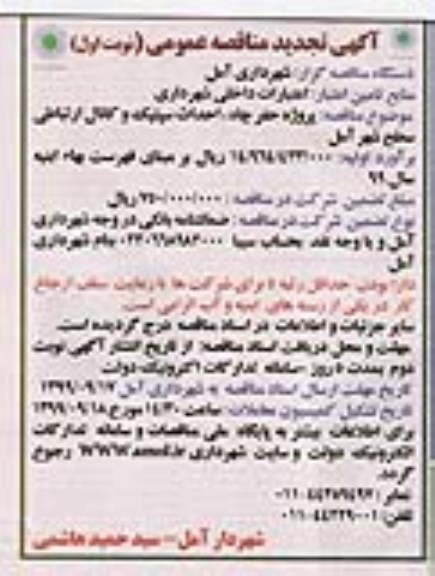 آگهی تجدید مناقصه عمومی (نوبت اول)
دستگاه مناقصه گزار: شهرداری آمل
منابع تامین اعتبار: اعتبارات داخلی شهرداری
موضوع مناقصه: پروژه حفر چاه، احداث سپتیک و کانال ارتباطی
سطح شهر آمل
برآورد اولیه: ریال بر مبنای فهرست بهاء ابنیه
سال ۹۹
مبلغ تضمین شرکت در مناقصه: ۷۵۰/۰۰۰/۰۰۰ ریال
نوع تضمین شرکت در مناقصه: ضمانتنامه بانکی در وجه شهرداری
آمل و یا وجه نقد بحساب سیبا بنام شهرداری
آمل
دارا بودن حداقل رتبه ۵ برای شرکت ها با رعایت سقف ارجاع
کار در یکی از رسته های ابنیه و آب الزامی است.
سایر جزئیات و اطلاعات در اسناد مناقصه درج گردیده است.
مهلت و محل دریافت اسناد مناقصه: از تاریخ انتشار آگهی نوبت
دوم بمدت ۵ روز -سامانه تدارکات الکترونیک دولت
تاریخ مهلت ارسال اسناد مناقصه به شهرداری آمل ۱۳۹۹/۰۹/۱۷
تاریخ تشکیل کمیسیون معاملات: ساعت ۱۴/۳۰ مورخ ۱۳۹۹/۰۹/۱۸
برای اطلاعات بیشتر به پایگاه ملی مناقصات و سامانه تدارکات
الکترونیک دولت و سایت شهرداری WWW.amol.ir رجوع
گردد.
نمابر:
تلفن:
شهردار آمل – سید حمید هاشمی